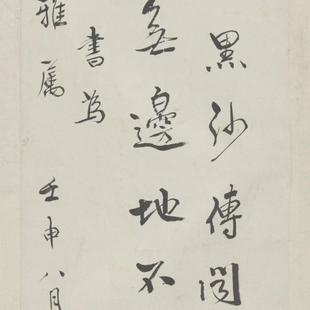 黑沙傳
無邊地不
書為
雅屬 壬申八月